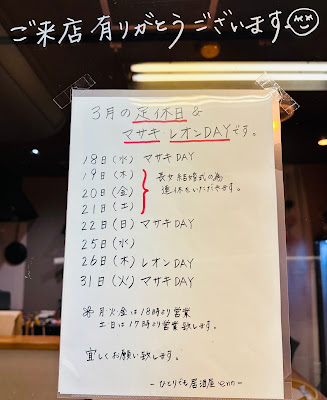 ご来店 有りがとうございます。
3月の定休日&
マサキ レオンDAYです。
18日(水) マサキDAY
19日(木)
20日(金)
21日(土)
長女結婚式の為
連休をいただきます。
22日(日) マサキDAY
25日(水)
26日(木) レオンDAY
31日(火) マサキDAY
月火金は18時より営業
土日は17時より営業致します。
宜しくお願い致します。
-ひとりでも居酒屋 enn-